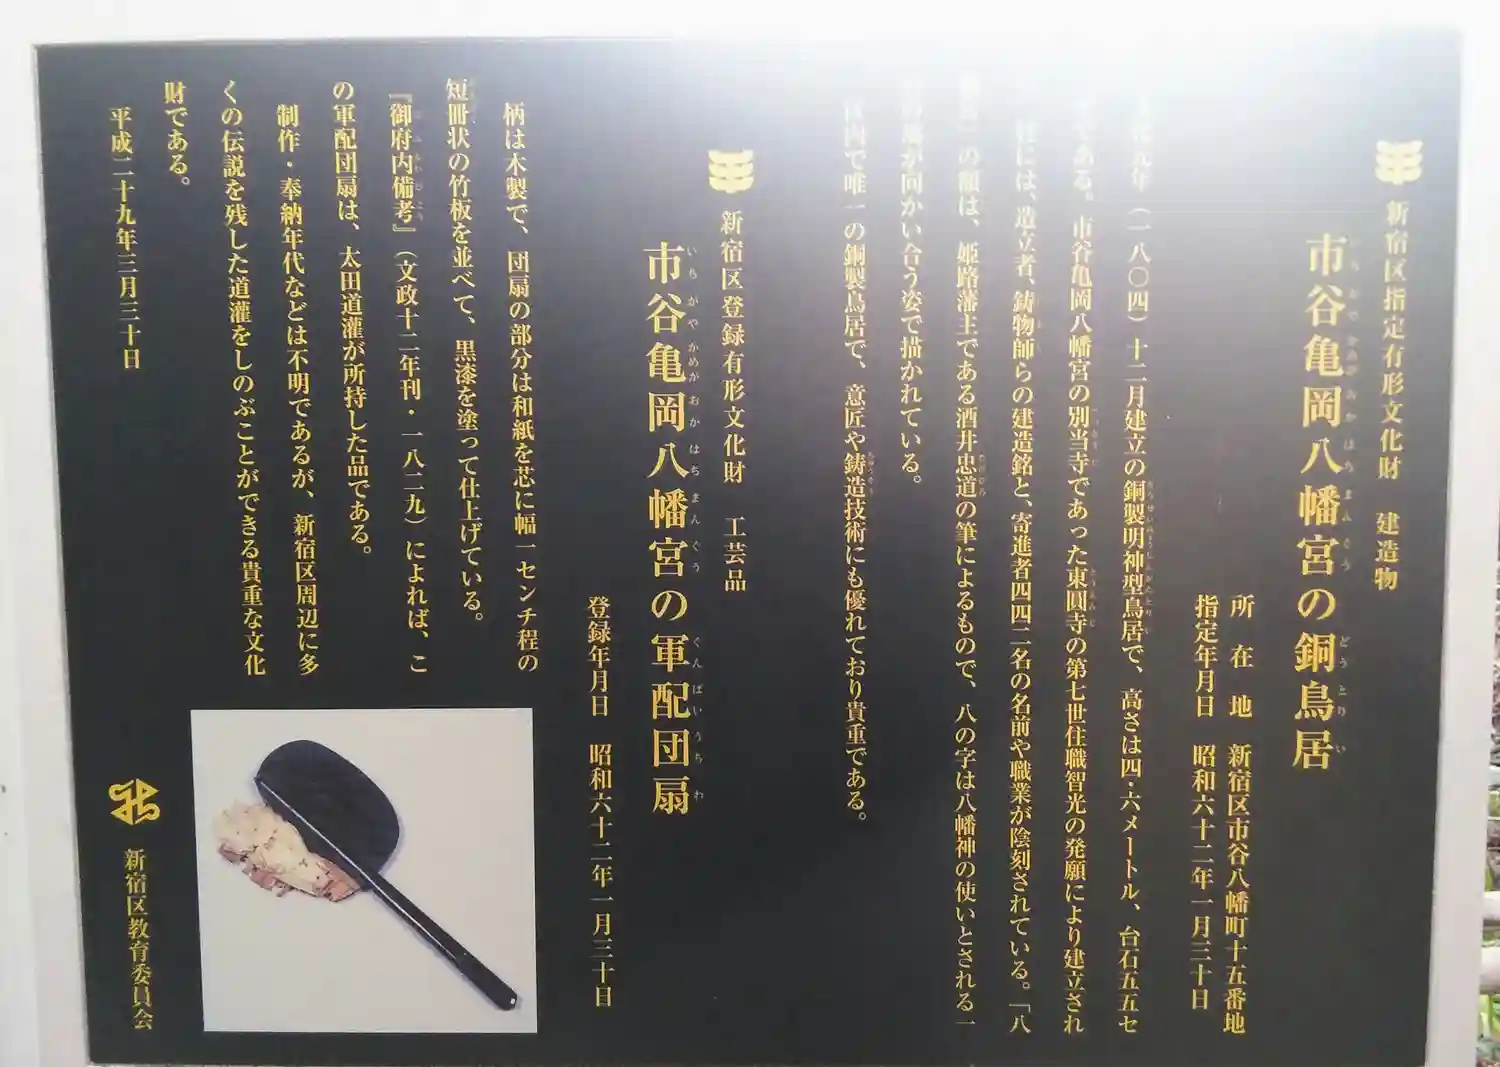 新宿区指定有形文化財　建造物
市谷亀岡八幡宮の銅鳥居
いちがやかめがおかはちまんぐう　どうとりい
所　在　地　新宿区市谷八幡町十五番地
指定年月日　昭和六十二年一月三十日
元年（一八〇四）十二月建立の銅製明神型鳥居で、高さは四・六メートル、台石五五セ
である。市谷亀岡八幡宮の別当寺であった東圓寺の第七世住職智光の発願により建立され
には、造立者、鋳物師らの建造銘と、寄進者四四二名の名前や職業が陰刻されている。「八
」の額は、姫路藩主である酒井忠道の筆によるもので、八の字は八幡神の使いとされる一
が向かい合う姿で描かれている。
内で唯一の銅製鳥居で、意匠や鋳造技術にも優れており貴重である。
新宿区登録有形文化財　工芸品
市谷亀岡八幡宮の軍配団扇
いちがやかめがおかはちまんぐう　ぐんばいうちわ
登録年月日　昭和六十二年一月三十日
柄は木製で、団扇の部分は和紙を芯に幅一センチ程の
短冊状の竹板を並べて、黒漆を塗って仕上げている。
『御府内備考』（文政十二年刊・一八二九）によれば、こ
の軍配団扇は、太田道灌が所持した品である。
制作・奉納年代などは不明であるが、新宿区周辺に多
くの伝説を残した道灌をしのぶことができる貴重な文化
財である。
平成二十九年三月三十日
新宿区教育委員会